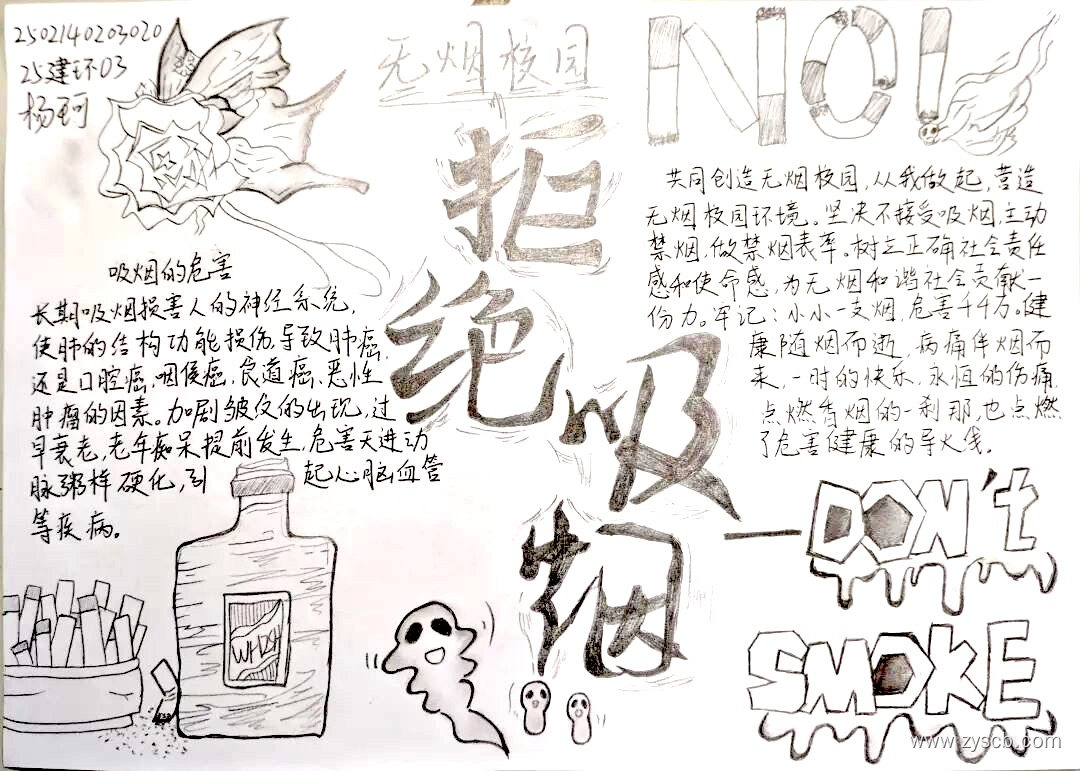 2502140203020
25建环03
杨珂
无烟校园
NO!
拒
绝
吸
烟
吸烟的危害
长期吸烟损害人的神经系统,
使肺的结构功能损伤,导致肺癌,
还是口腔癌、咽侯癌、食道癌、恶性
肿瘤的因素。加剧皱纹的出现,过
早衰老,老年痴呆提前发生,危害天进动
脉粥样硬化,引起心脑血管
等疾病。
共同创造无烟校园,从我做起,营造
无烟校园环境。坚决不接受吸烟,主动
禁烟,做禁烟表率。树立正确社会责任
感和使命感,为无烟和谐社会贡献一
份力。牢记:小小一支烟,危害千千万。健
康随烟而逝,病痛伴烟而
来,一时的快乐,永恒的伤痛,
点燃香烟的一刹那,也点燃
了危害健康的导火线。
DON't
SMOKE
www.zyscb.com